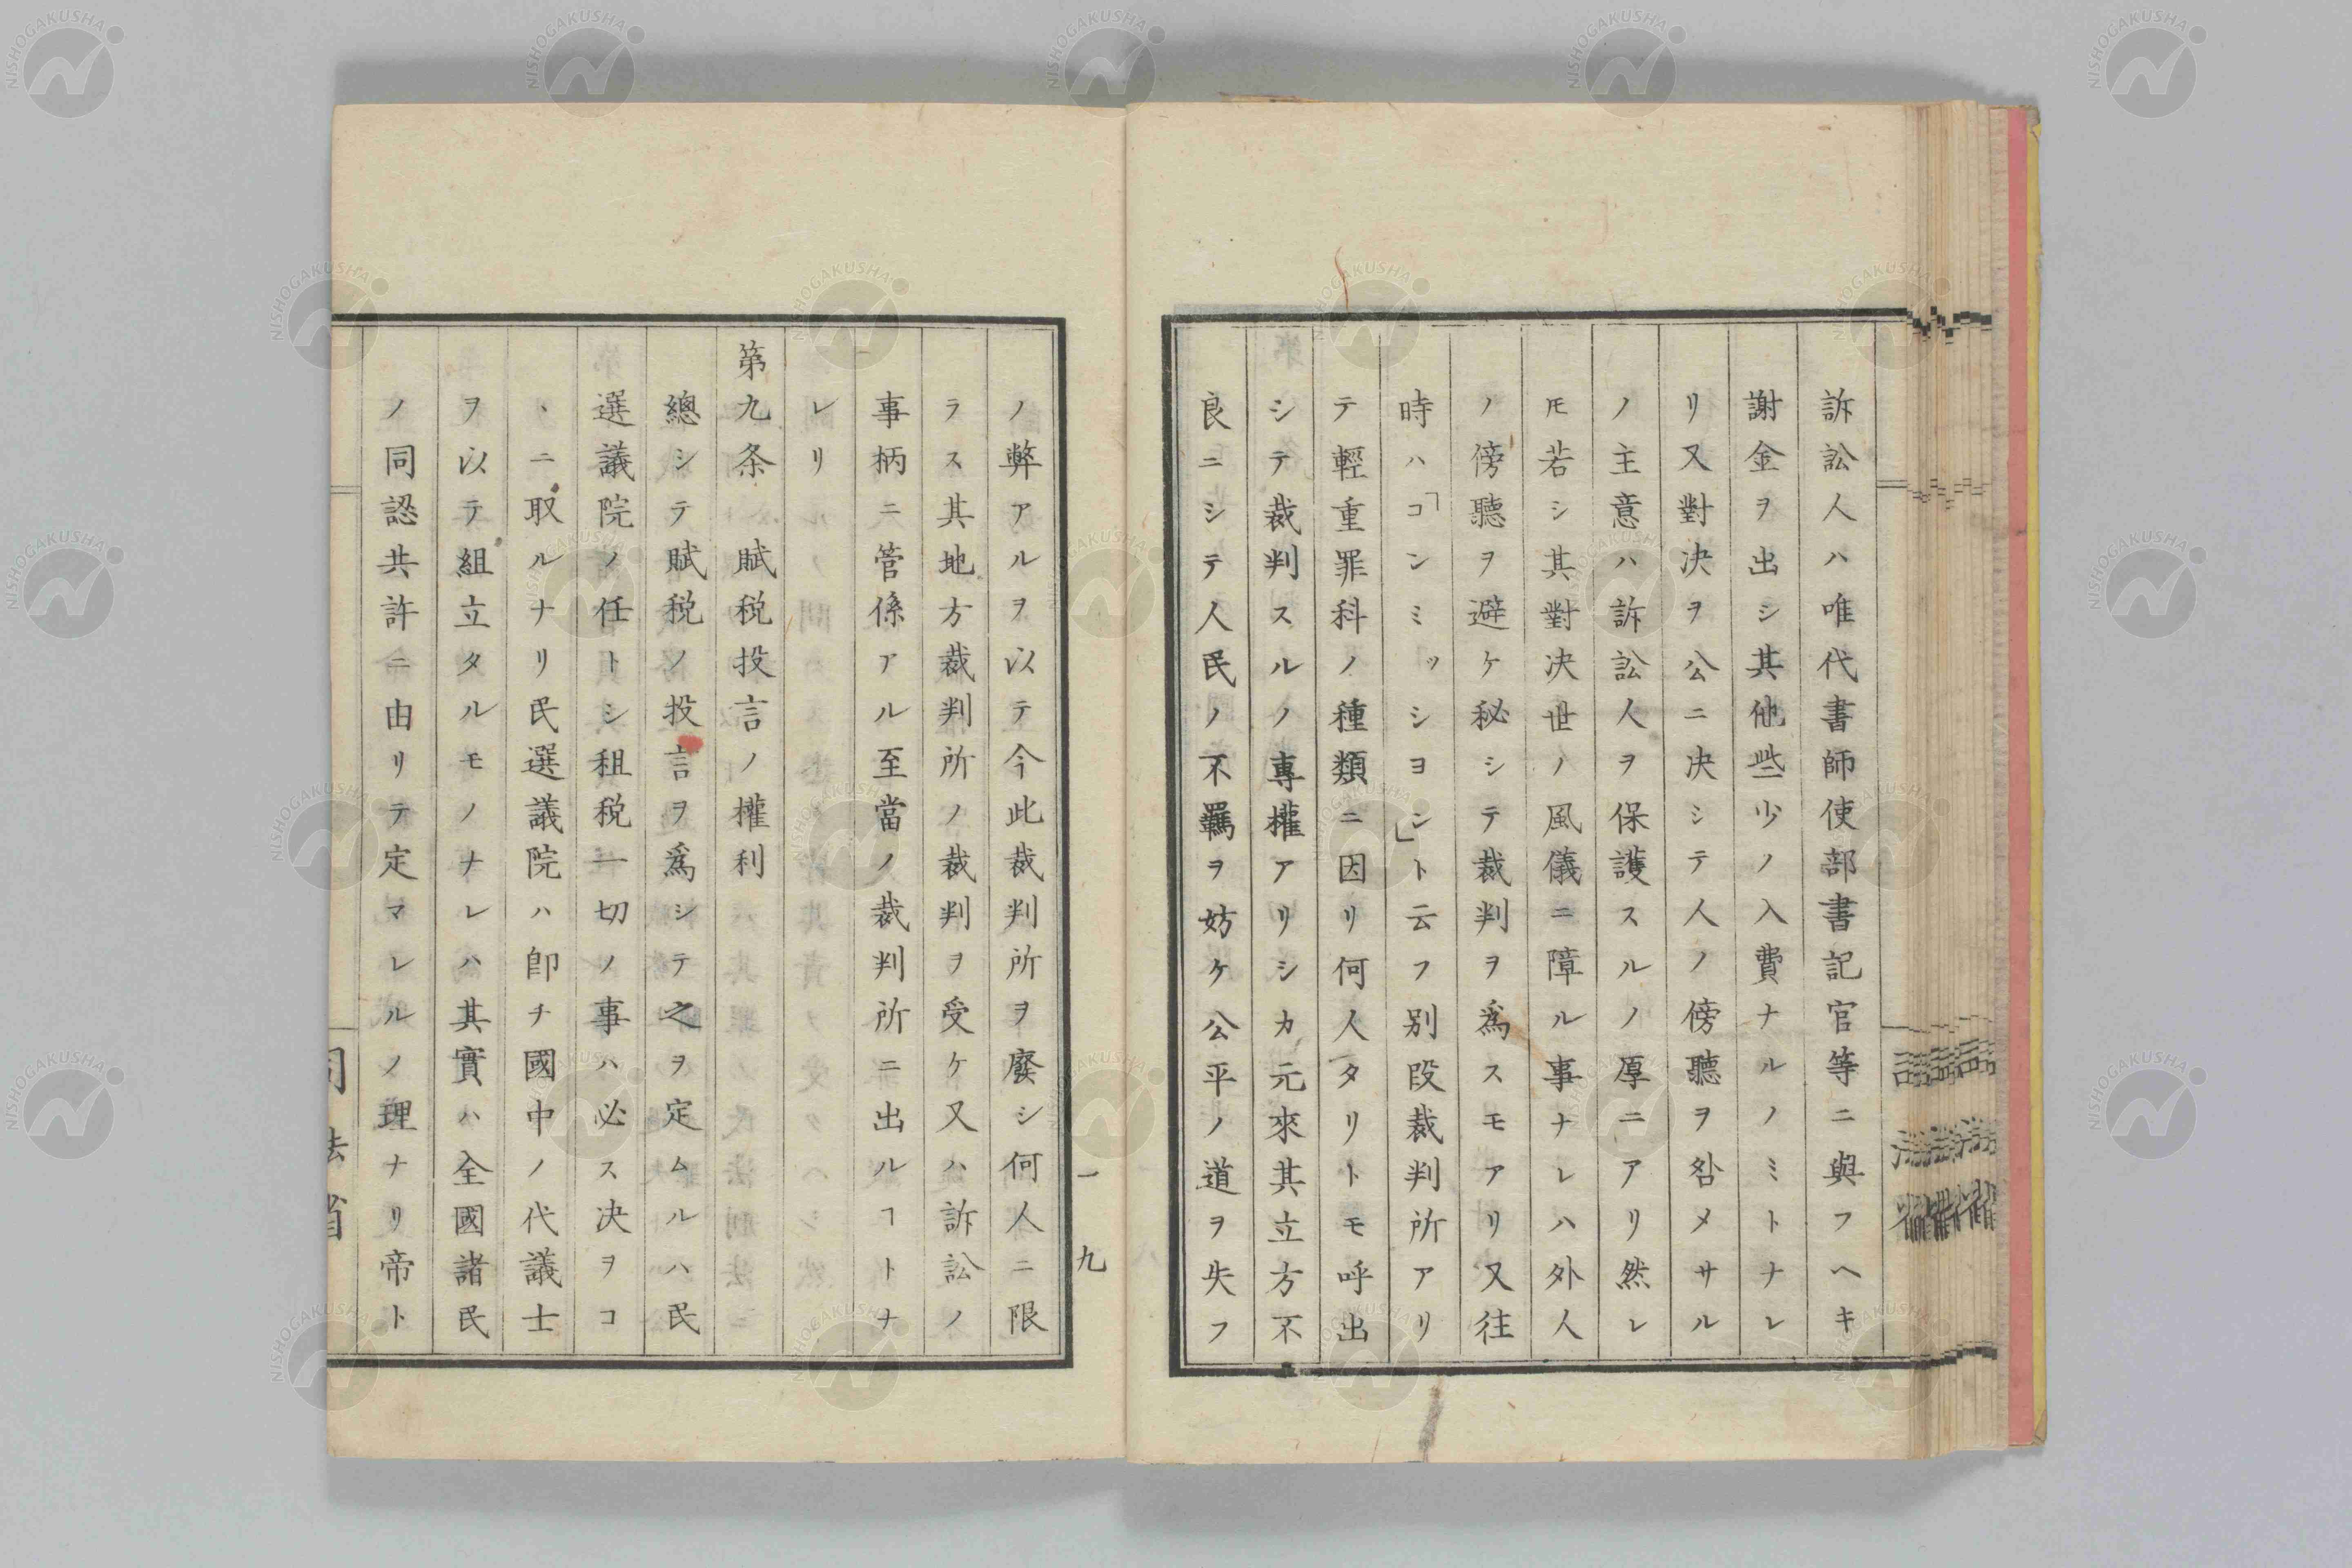 訴訟人ハ唯代書師使部書記官等ニ與フヘキ
謝金ヲ出シ其他些少ノ入費ナルノミトナレ
リ又對决ヲ公ニ决シテ人ノ傍聽ヲ咎メサル
ノ主意ハ訴訟人ヲ保護スルノ厚ニアリ然レ
𪜈若シ其對决世ノ風儀ニ障ル事ナレハ外人
ノ傍聽ヲ避ケ秘シテ裁判ヲ爲スモアリ又往
時ハ「コンミッシヨン」ト云フ別段裁判所アリ
テ輕重罪科ノ種類ニ因リ何人タリトモ呼出
シテ裁判スルノ專權アリシカ元來其立方不
良ニシテ人民ノ不羈ヲ妨ケ公平ノ道ヲ失フ
ノ弊アルヲ以テ今此裁判所ヲ廢シ何人ニ限
ラス其地方裁判所ノ裁判ヲ受ケ又ハ訴訟ノ
事柄ニ管係アル至當ノ裁判所ニ出ルヿトナ
レリ
第九条賦税投言ノ權利
總シテ賦税ノ投言ヲ爲シテ之ヲ定ムルハ民
選議院ノ任トシ租税一切ノ事ハ必ス决ヲコ
ヽニ取ルナリ民選議院ハ卽チ國中ノ代議士
ヲ以テ組立タルモノナレハ其實ハ全國諸民
ノ同認共許ニ由リテ定マレルノ理ナリ帝ト
一九
司法省
NISHOGAKUSHA